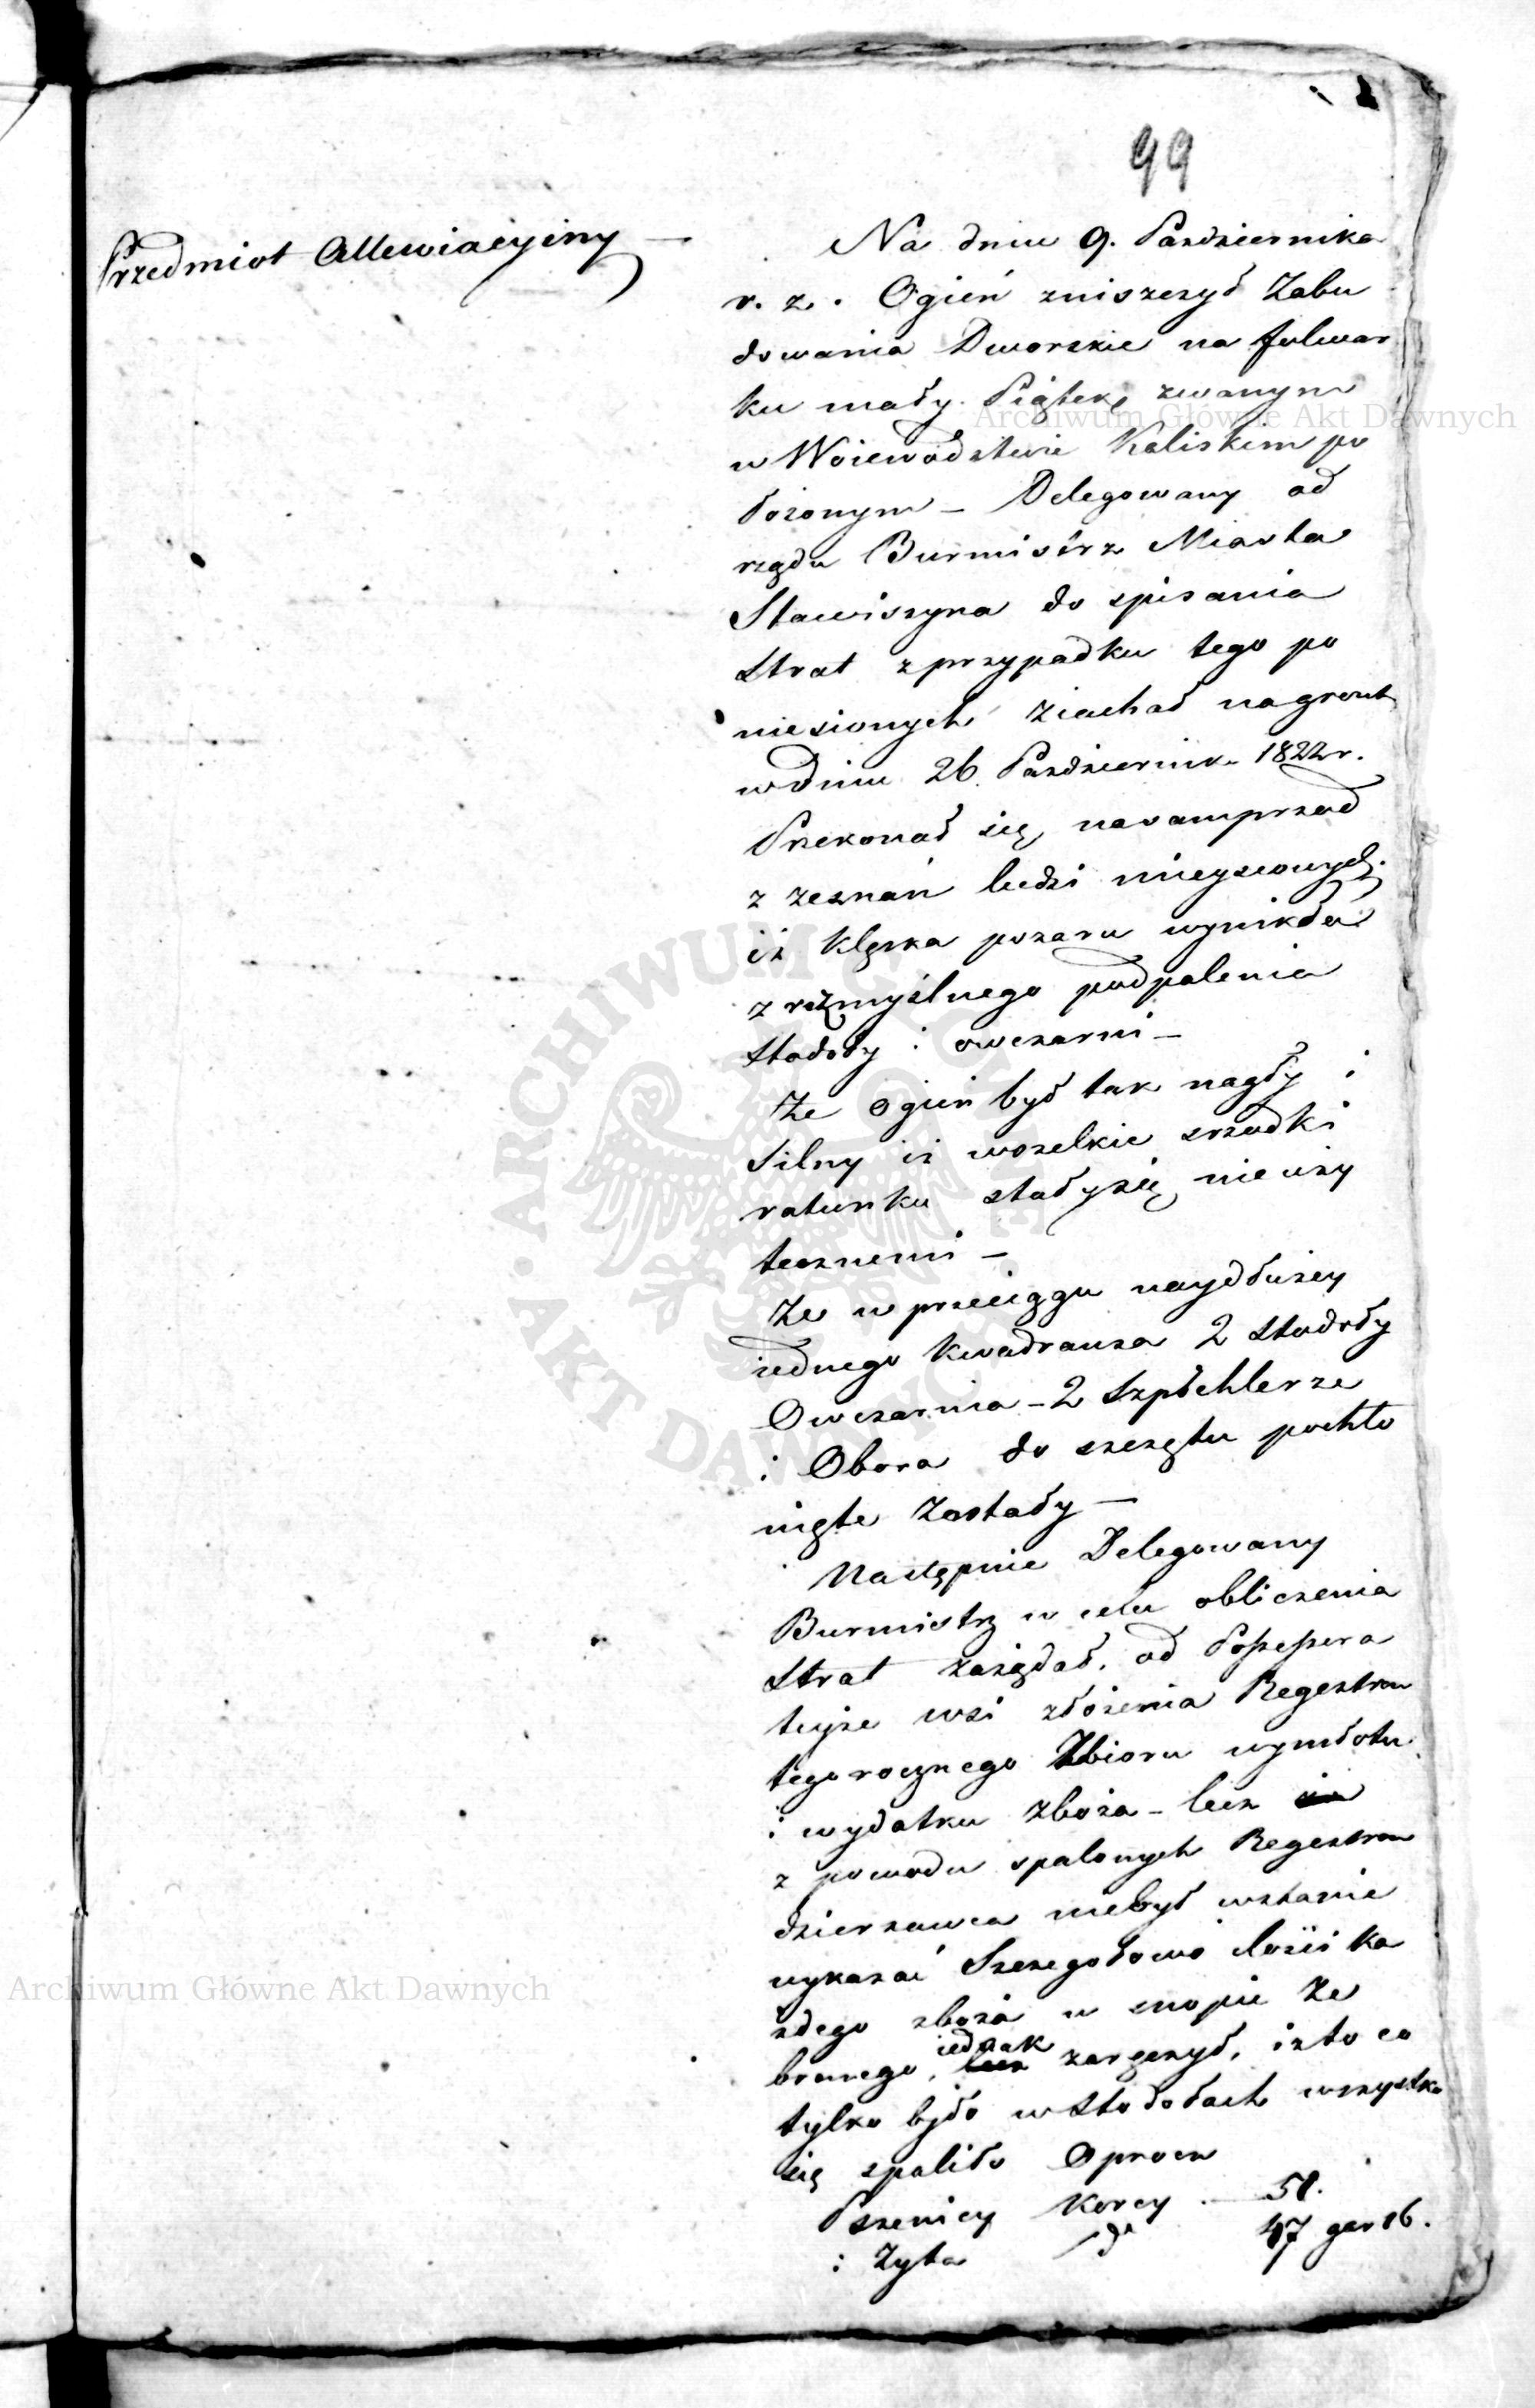 99
Przedmiot Allewiacyiny —
Na dniu 9. Pazdziernika
r. z. Ogień zniszczył Zabu
dowania Dworskie na folwar
ku mały Piątek zwanym
w Woiewództwie Kaliskim po
łożonym — Delegowany od
rządu Burmistrz Miasta
Stawiszyna do spisania
Strat z przypadku tego po
niesionych ziachał na gront
w dniu 26. Pazdziernik. 1822 r.
Przekonał się, nasamprzod
z zeznań ludzi mieyscowych.
iż klęska pożaru wynikła
z rozmyślnego podpalenia
Stodoły i owczarni —
Że ogień był tak nagły i
Silny iż wszelkie srzodki
ratunku stały się nieuży
tecznemi —
Że w przeciągu naydłużey
iednego kwadransa 2 Stodoły
Owczarnia — 2 Szpichlerze
i Obora do szczętu pochło
nięte Zostały —
Następnie Delegowany
Burmistrz w celu obliczenia
Strat zażądał. od Possessora
teyże wsi złożenia Regestrow
tegorocznego Zbioru wymłotu
i wydatku zboża — lecz
z powodu spalonych Regestrow
dzierzawca niebył wstanie
wykazać Szczegołowo ilości ka
żdego zboża w snopie Ze
branego, iednak zaręczył, iż to co
tylko było w Stodołach wszystko
się spaliło Oprocz
Pszenicy Korcy — 51.
i Żyta do 47 gar 16.
Archiwum Główne Akt Dawnych
Archiwum Główne Akt Dawnych
ARCHIWUM GŁÓWNE AKT DAWNYCH